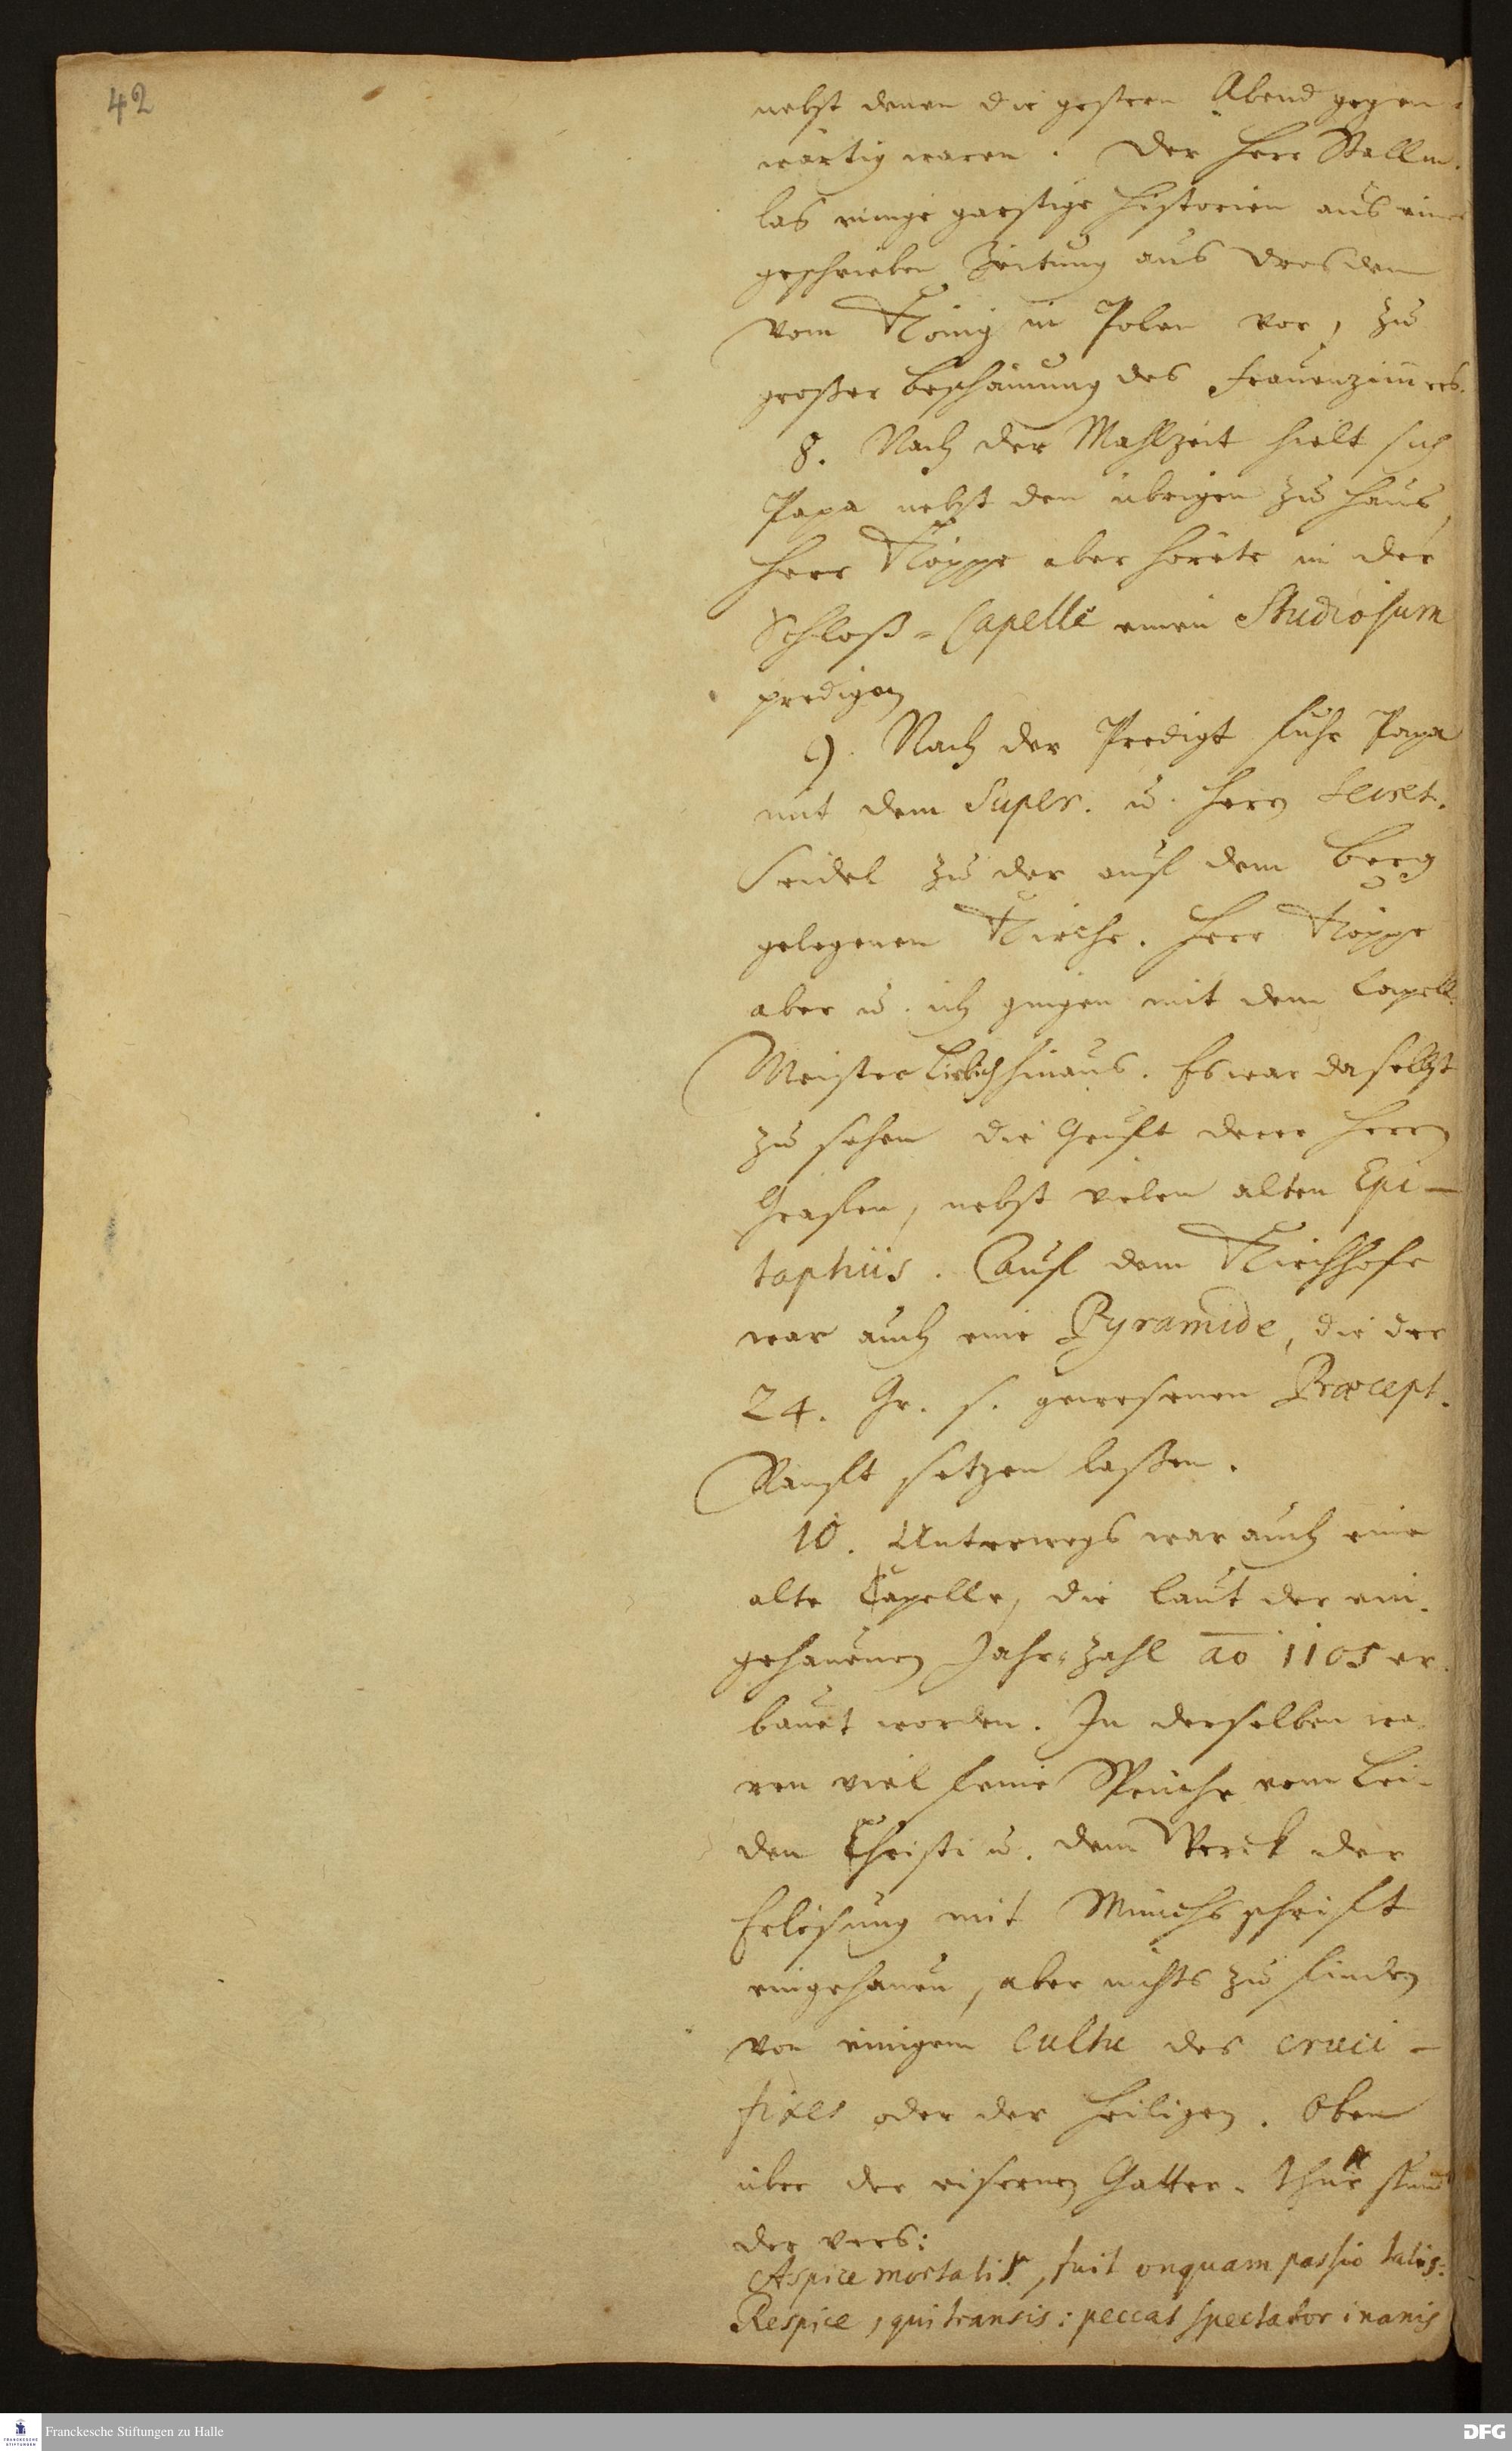 42
nebst denen die gestern Abend gegen-
wärtig waren. Der Herr Stallm.
las einige garstige Historien aus einer
geschrieben Zeitung aus Dresden
vom König in Polen vor, zu
großer Beschämung des Frauenzimers.
8. Nach der Mahlzeit hielt sich
Papa nebst den übrigen zu Haus,
Herr Köppe aber hörete in der
Schloß-Capelle einen Studiosum
predigen
9. Nach der Predigt fuhr Papa
mit dem Super. u. Herrn Secret.
Seidel zu der auf dem Berg
gelegenen Kirche. Herr Köppe
aber u. ich gingen mit dem Capell-
Meister Liebich hinaus. Es war daselbst
zu sehen die Gruft derer Herrn
Grafen, nebst vielen alten Epi-
taphiis. Auf dem Kirchhofe
war auch eine Pyramide, die der
24. Gr. s. gewesenen Præcept.
Ranft setzen laßen.
10. Unterwegs war auch eine
alte Capelle, die laut der ein-
gehauenen Jahr-Zahl ao 1105 er-
bauet worden. In derselben wa-
ren viel feine Sprüche vom Lei-
den Christi u. dem Werck der
Erlösung mit Münchsschrift
eingehauen, aber nichts zu finden
von einigem Cultu des Cruci-
fixes oder der Heiligen. Oben
über der eisernen Gatter-Thür stund
der Vers:
Aspice mortalis, fuit unquam passio talis.
Respice, qui transis: peccas spectator inanis
Franckesche Stiftungen zu Halle
FRANCKESCHE STIFTUNGEN
DFG